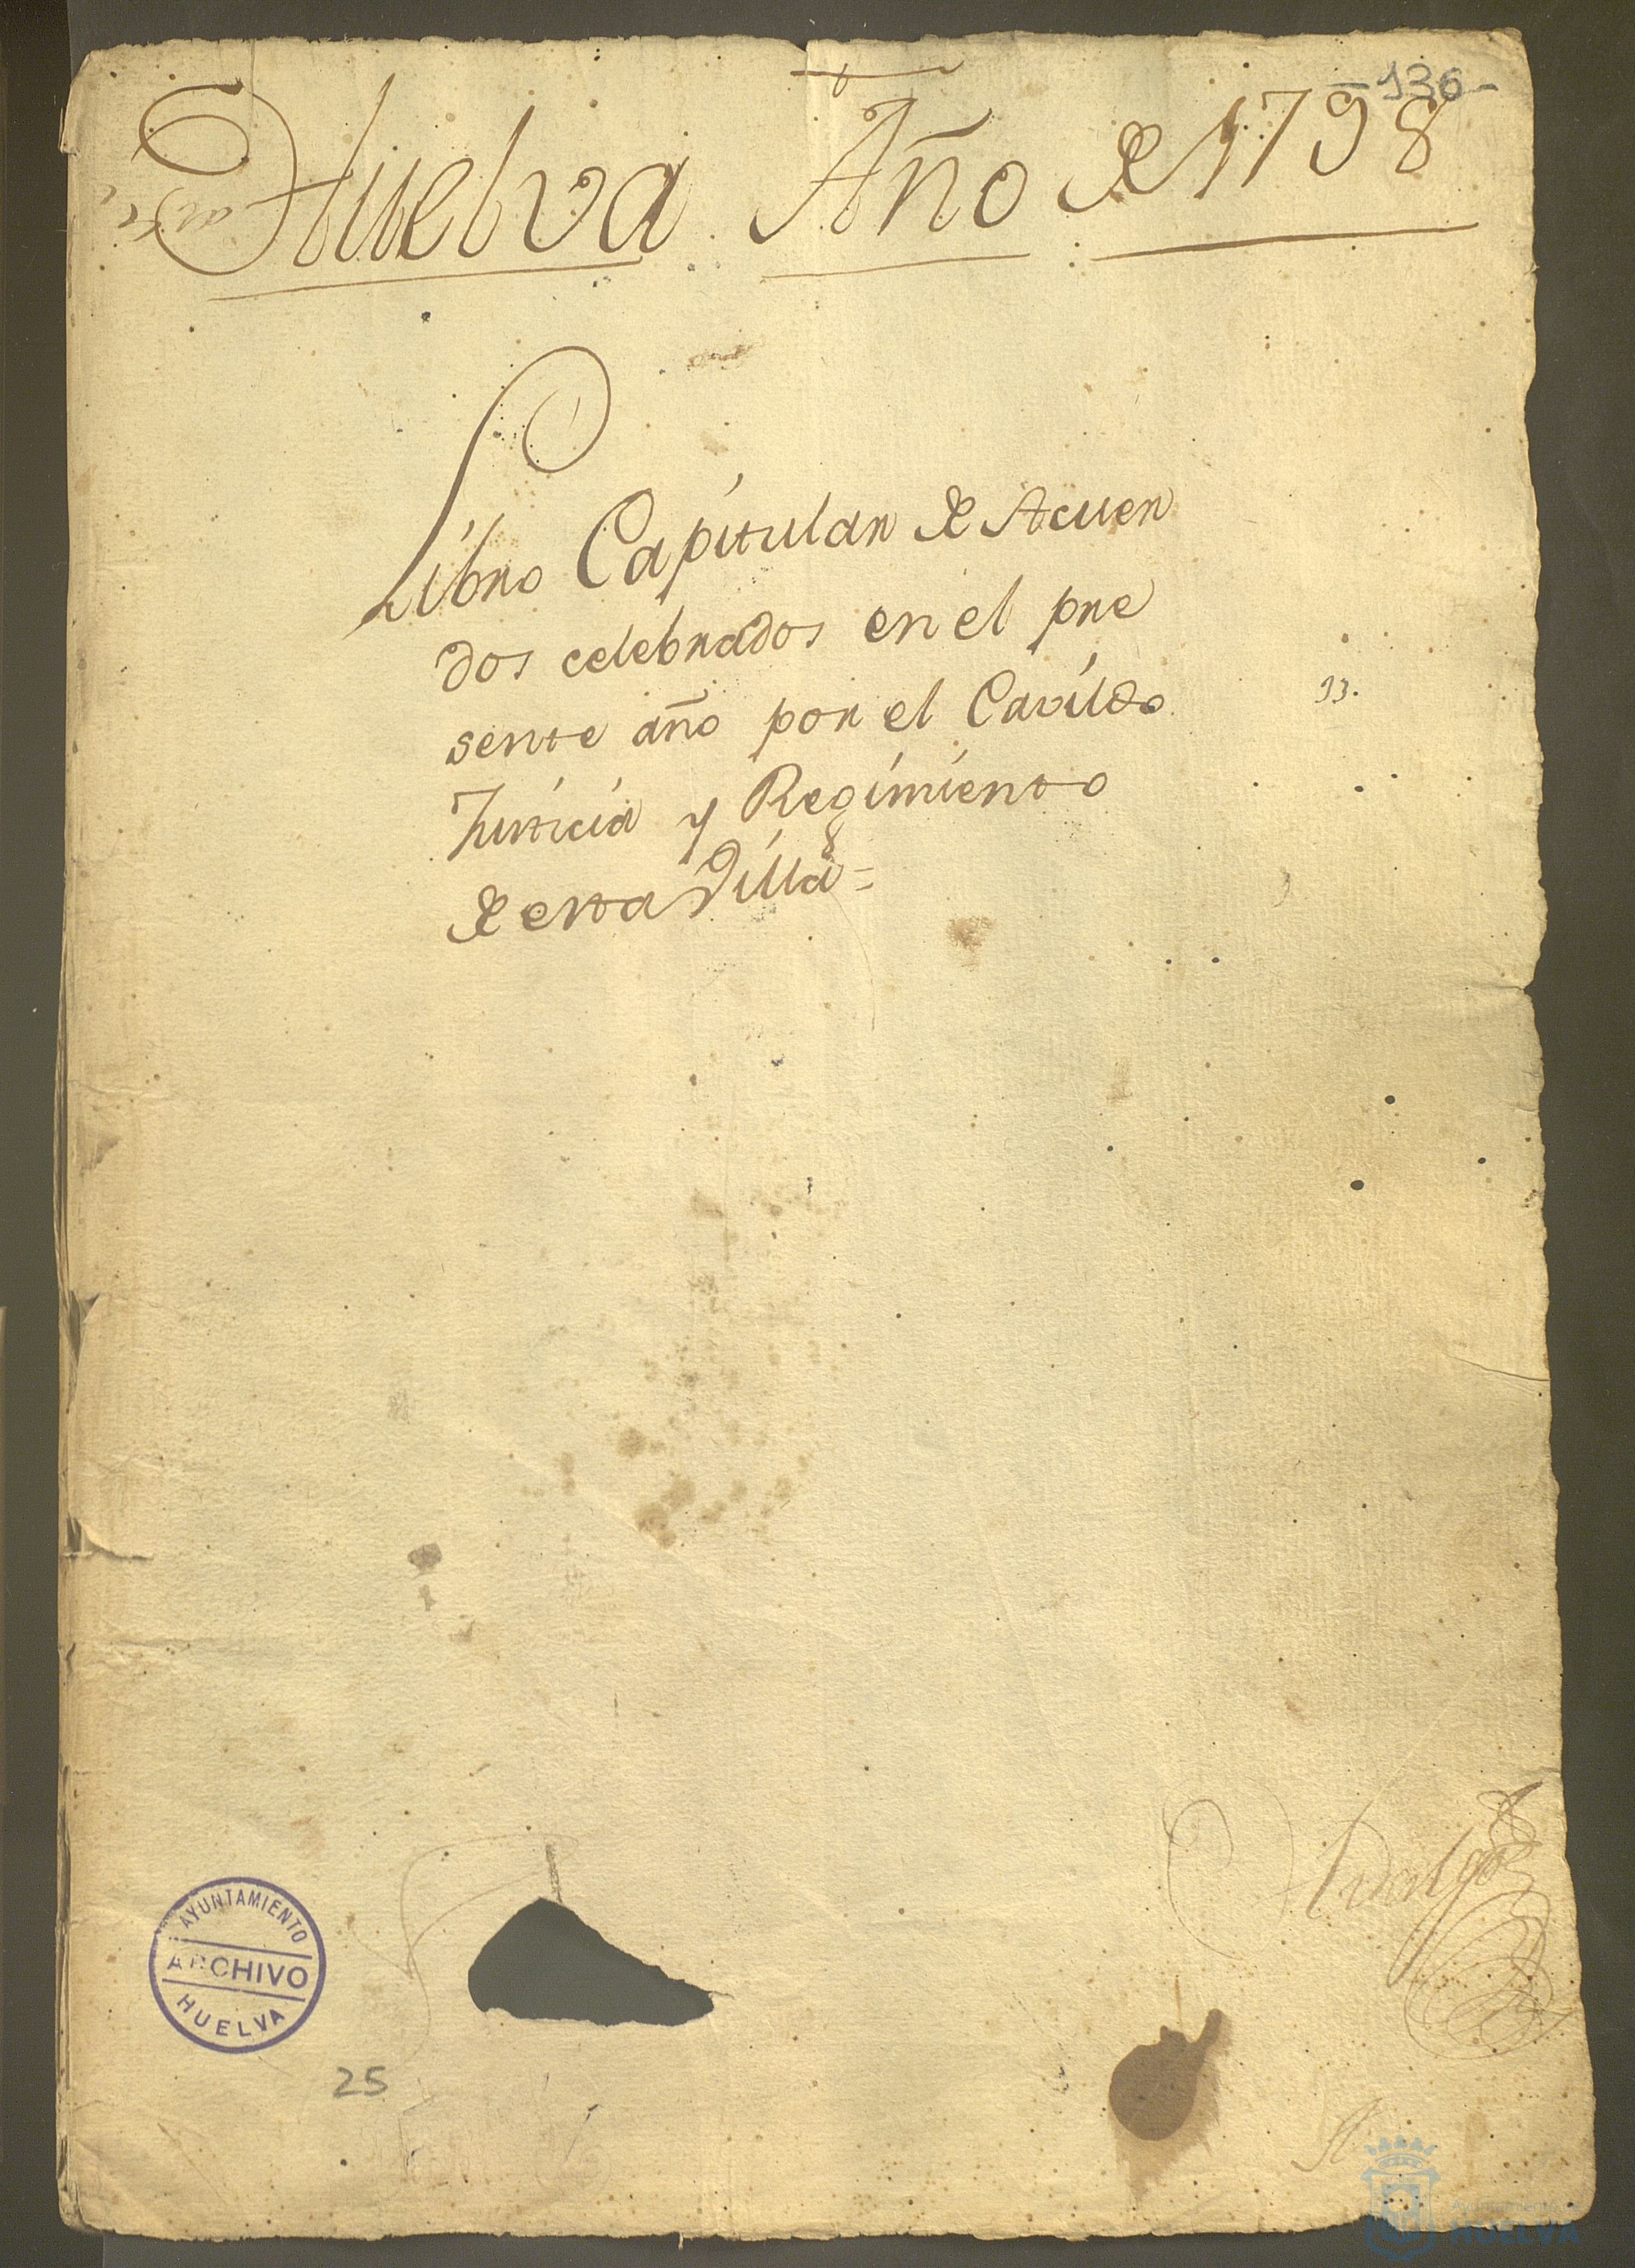 -136-
Huelva Año de 1798
Libro Capitular de Acuer
dos celebrados en el pre
sente año por el Cavildo
13.
Justicia y Regimiento
de esta Villa=
Hidalgo
AYUNTAMIENTO
ARCHIVO
HUELVA
25
Ayuntamiento
HUELVA